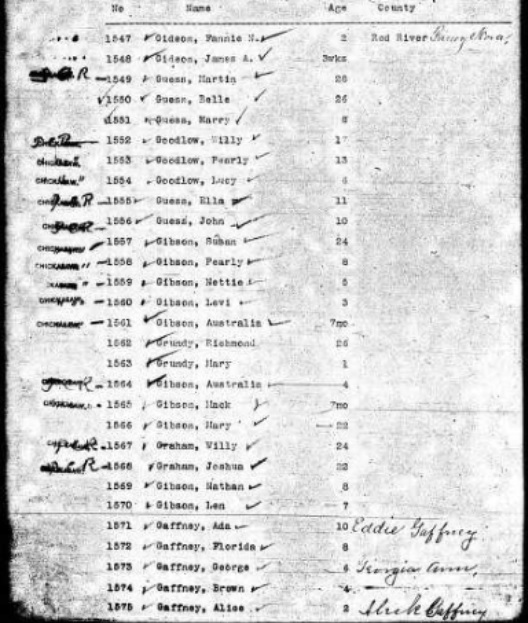 No Name Age County
1547 Gideon, Fannie N. 2 Red River
1548 Gideon, James A. 3wks
R 1549 Guess, Martin 26
1550 Guess, Belle 26
1551 Guess, Marry 8
1552 Goodlow, Willy 17
CHICKASAW 1553 Goodlow, Pearly 13
CHICKASAW " 1554 Goodlow, Lucy
R 1555 Guess, Ella 11
R 1556 Guess, John 10
CHICKASAW 1557 Gibson, Susan 24
CHICKASAW " 1558 Gibson, Pearly 8
" 1559 Gibson, Nettie 5
CHICKASAW 1560 Gibson, Levi 3
CHICKASAW 1561 Gibson, Australia 7mo
1562 Grundy, Richmond 26
1563 Grundy, Mary 1
R 1564 Gibson, Australia 4
CHICKASAW 1565 Gibson, Mack 7mo
1566 Gibson, Mary 22
R 1567 Graham, Willy 24
R 1568 Graham, Joshua 22
1569 Gibson, Nathan 8
1570 Gibson, Len 7
1571 Gaffney, Ada 10 Eddie Gaffney
1572 Gaffney, Florida 8
1573 Gaffney, George 6 Georgia Ann,
1574 Gaffney, Brown 4
1575 Gaffney, Alice 2 Gaffney